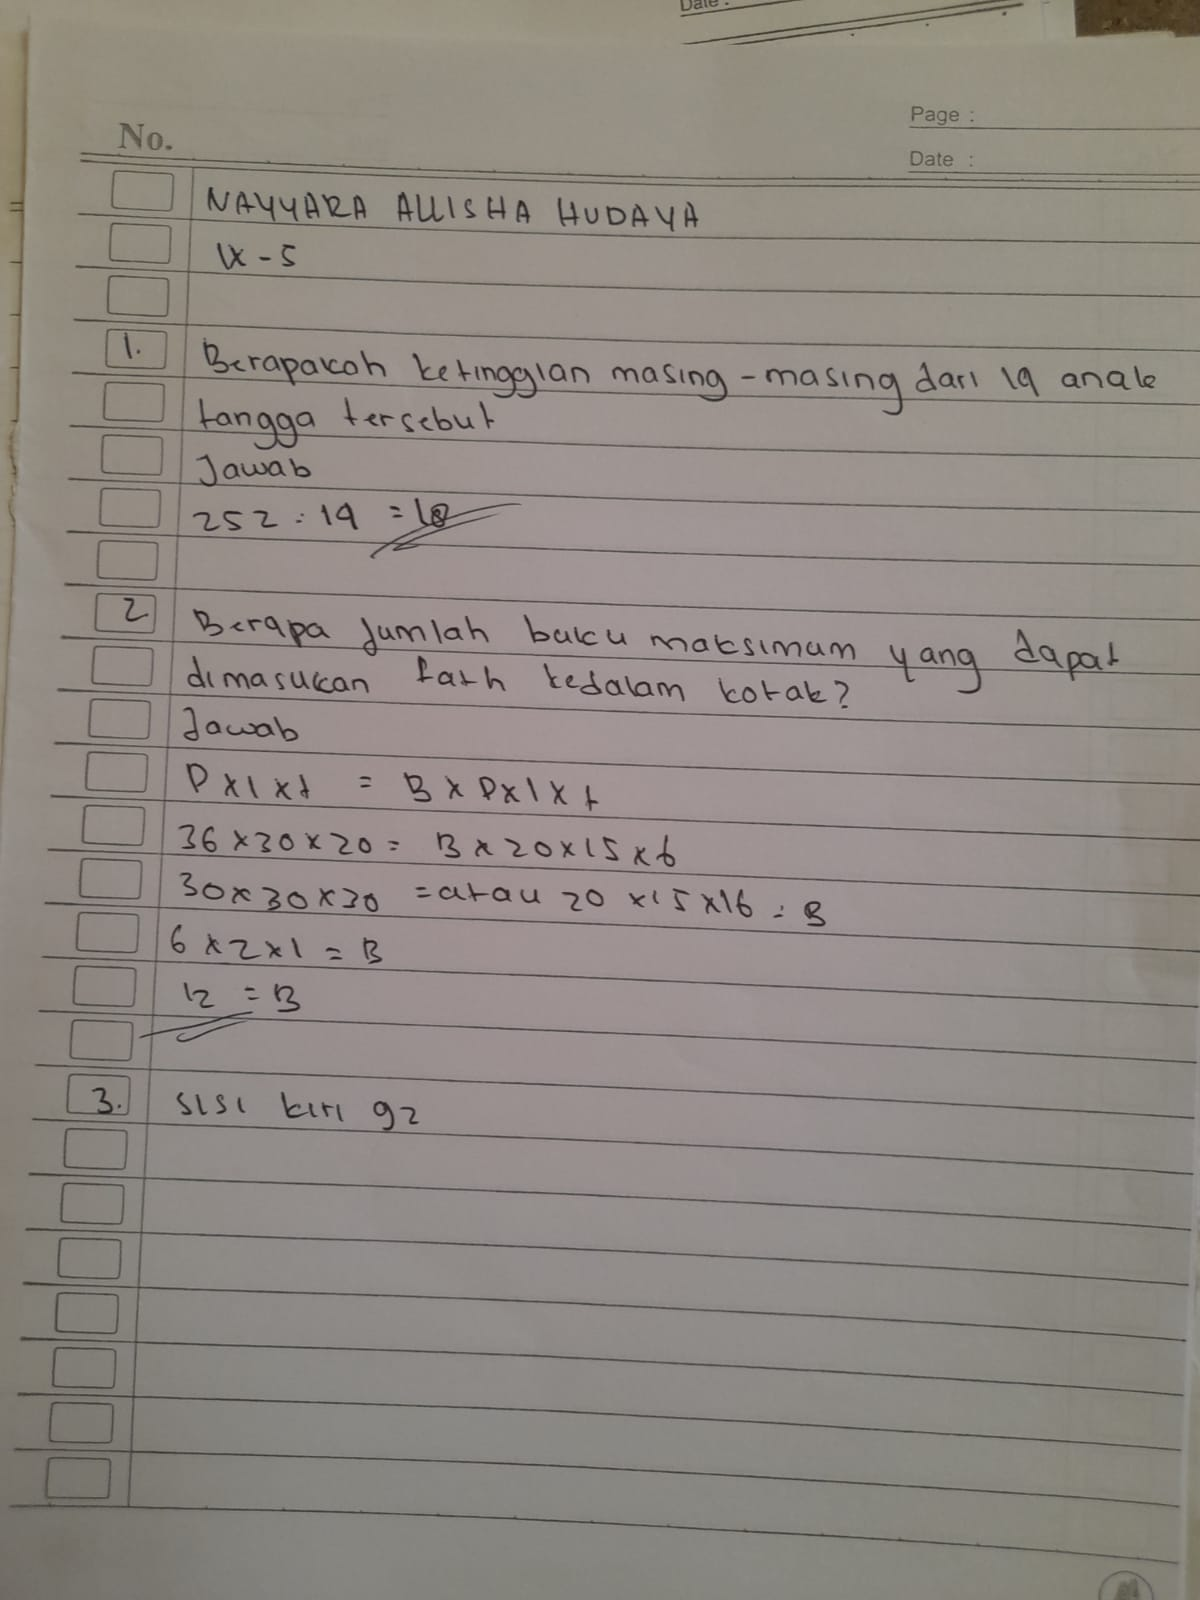 Date :
No.
Page :
Date :
NAYYARA ALLISHA HUDAYA
IX - 5
1. Berapakah ketinggian masing - masing dari 14 anak
tangga tersebut
Jawab
252 : 14 = 18
2 Berapa jumlah buku maksimum yang dapat
dimasukkan fath kedalam kotak?
Jawab
P x l x t = B x P x l x t
36 x 30 x 20 = B x 20 x 15 x 6
30 x 30 x 30 = atau 20 x 15 x 16 = B
6 x 2 x 1 = B
12 = B
3. sisi kiri 92